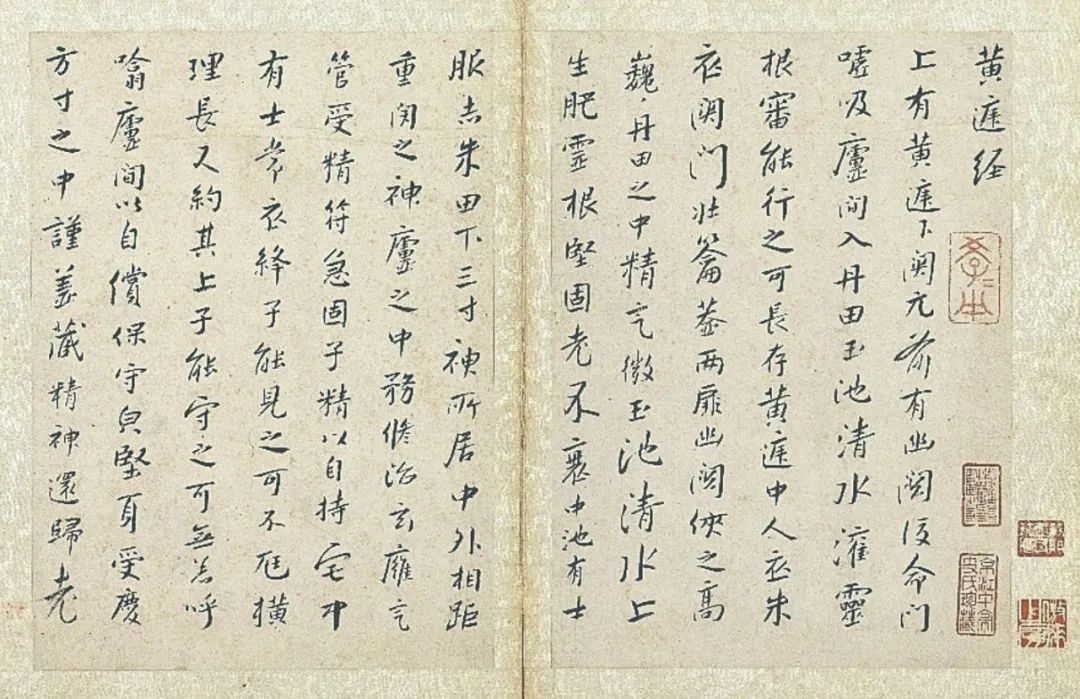 黄庭经
上有黄庭下関元前有幽闕後命門
嘘吸廬间入丹田玉池清水灌靈
根審能行之可長存黄庭中人衣朱
衣関門壮籥蓋两扉幽闕俠之高
巍〻丹田之中精气微玉池清水上
生肥霊根堅固老不衰中池有士
服赤朱田下三寸神所居中外相距
重閉之神廬之中務修治玄廱气
管受精符急固子精以自持宅中
有士常衣絳子能見之可不病橫
理長尺約其上子能守之可無恙呼
噏廬间以自償保守貞堅身受慶
方寸之中謹蓋藏精神還歸老